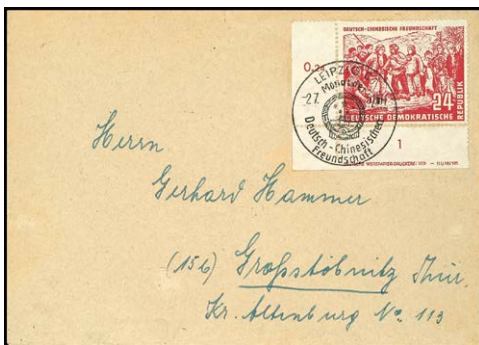 DEUTSCH-CHINESISCHE FREUNDSCHAFT
24
DEUTSCHE DEMOKRATISCHE
REPUBLIK
LEIPZIG
Monat der
Deutsch-Chinesischen
Freundschaft
1
Herrn
Gerhard Hammer
(15b) Großstöbnitz Thür.
Kr. Altenburg No. 113